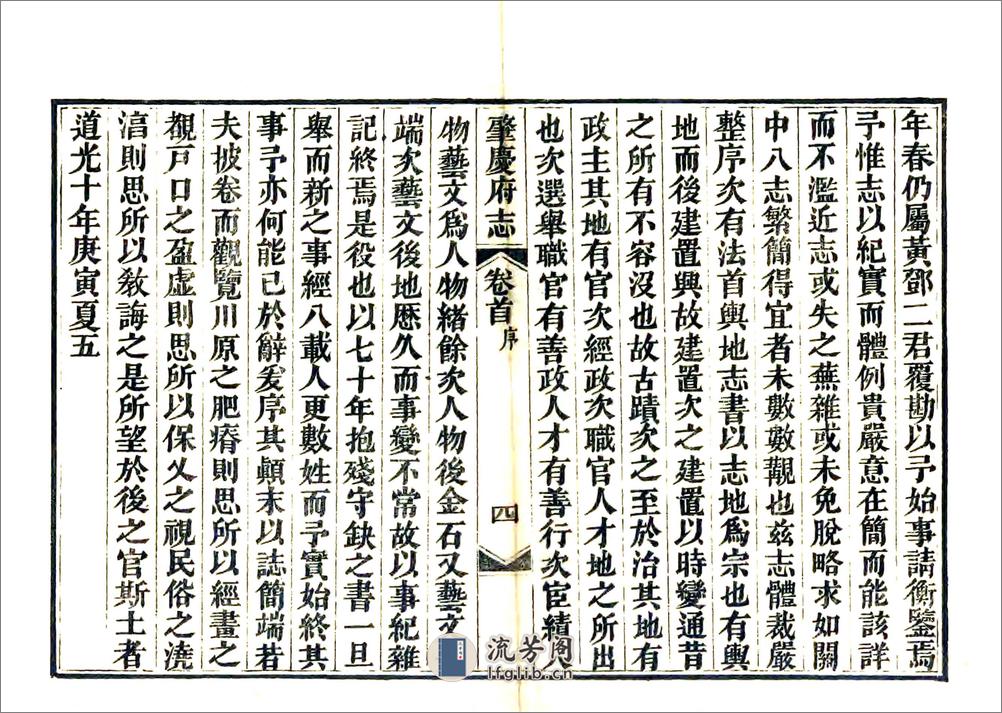 年春仍屬黃鄧二君覆勘以予始事請衡鑒焉
予惟志以紀實而體例貴嚴意在簡而能該詳
而不濫近志或失之蕪雜或未免脫略求如關
中八志繁簡得宜者未數數覯也兹志體裁嚴
整序次有法首輿地志書以志地爲宗也有輿
地而後建置興故建置次之建置以時變通昔
之所有不容沒也故古蹟次之至於治其地有
政主其地有官次經政次職官人才地之所出
也次選舉職官有善政人才有善行次宦績人
肇慶府志
卷首
序
四
物藝文爲人物緒餘次人物後金石又藝文
端次藝文後地歷久而事變不常故以事紀雜
記終焉是役也以七十年抱殘守缺之書一旦
舉而新之事經八載人更數姓而予實始終其
事予亦何能已於辭爰序其顛末以誌簡端若
夫披卷而觀覽川原之肥瘠則思所以經畫之
覩戸口之盈虛則思所以保乂之視民俗之澆
淳則思所以敎誨之是所望於後之官斯土者
道光十年庚寅夏五
流芳阁
lfglib.cn